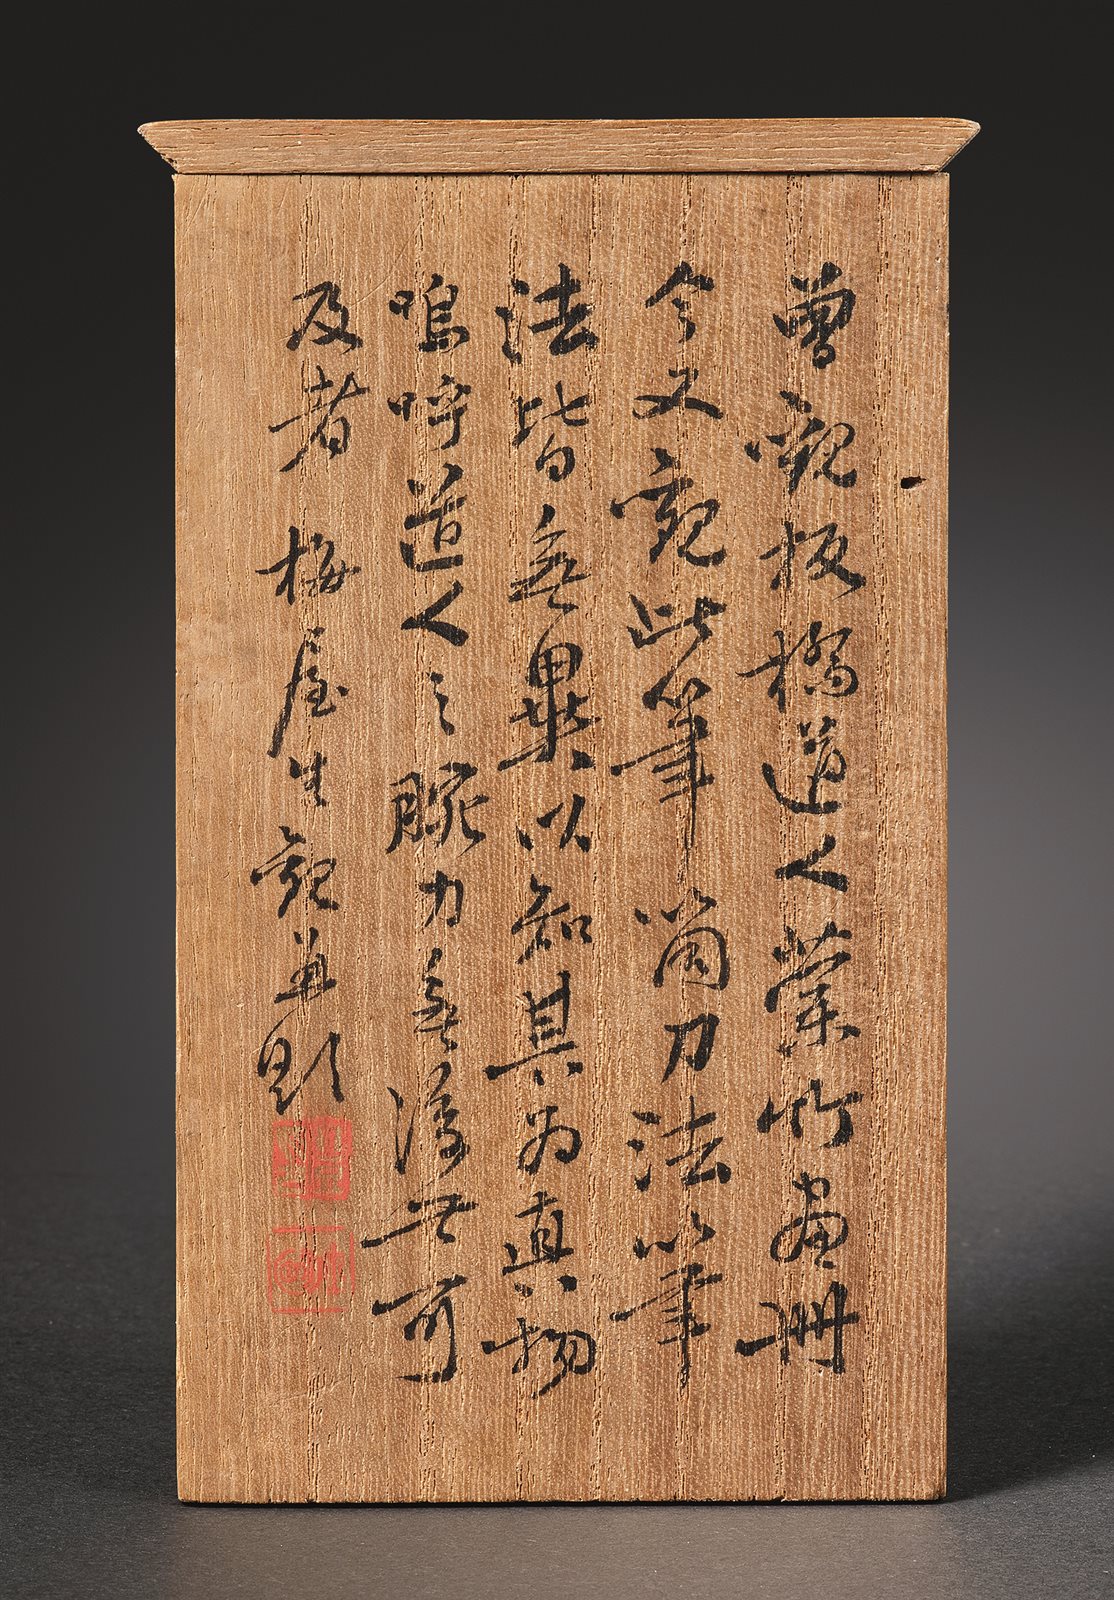 曾観板橋道人蘭竹畫冊
今又観此筆筒刀法以筆
法皆無異以知其為真物
嗚呼道人之腕力無後世可
及者 梅屋生観並題